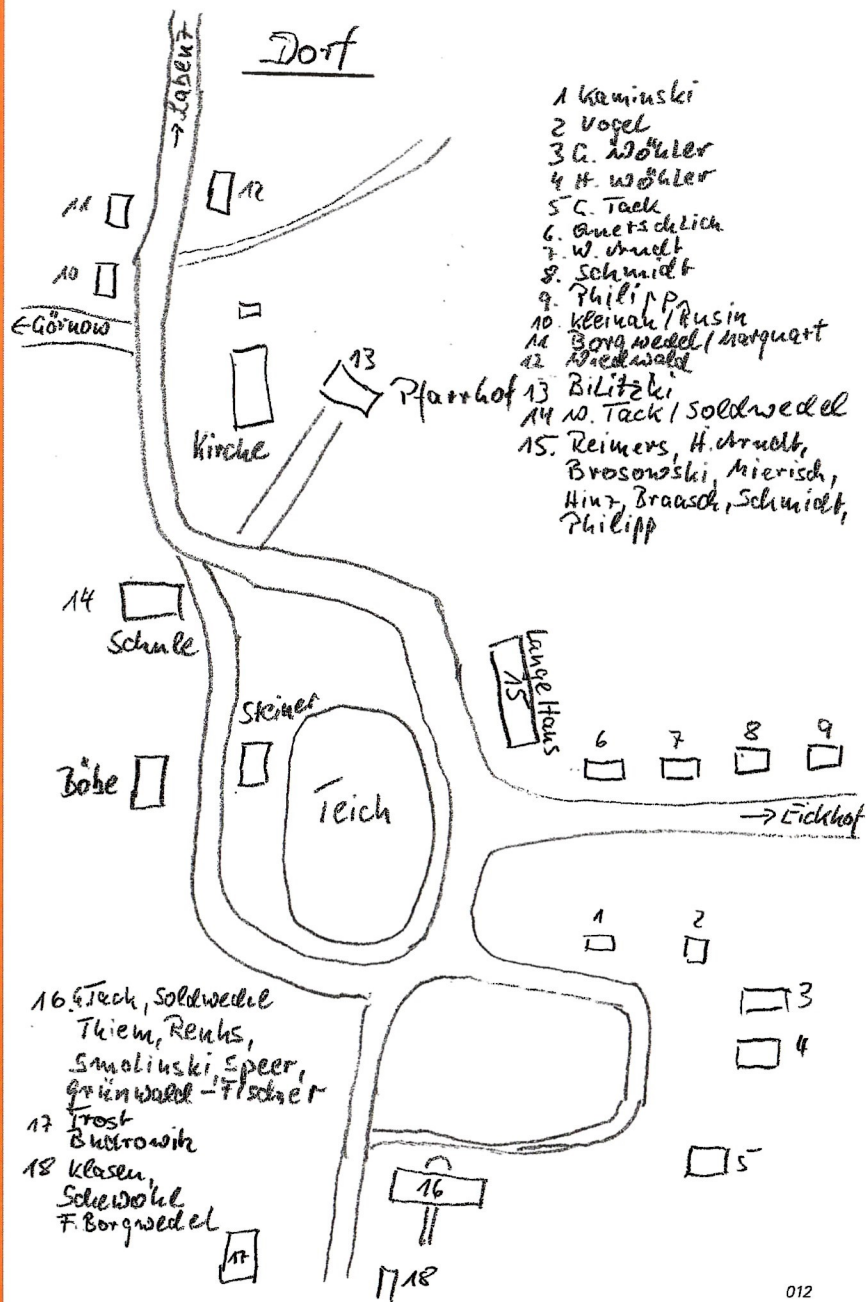 Dorf
→ Labenz
1 Kaminski
2 Vogel
3 G. Wöhler
4 H. Wöhler
5 G. Tack
6. Querschlich
7. W. Arndt
8. Schmidt
9. Philipp
10. Kleinau / Rusin
11 Borgwedel / Marquart
12 Wiedwald
13 Bilitzki
14 W. Tack / Soldwedel
15. Reimers, H. Arndt,
Brosowski, Mierisch,
Hinz, Braasch, Schmidt,
Philipp
11
12
10
← Görnow
13
Pfarrhof
Kirche
14
Schule
Lange Haus
15
Steiner
6
7
8
9
Böbe
Teich
→ Eickhof
1
2
3
4
5
16. G. Tack, Soldwedel
Thiem, Renhs,
Smolinski, Speer,
Grünwald - Fischer
17 Trost
18 Klasen,
F. Borgwedel
16
17
18
012